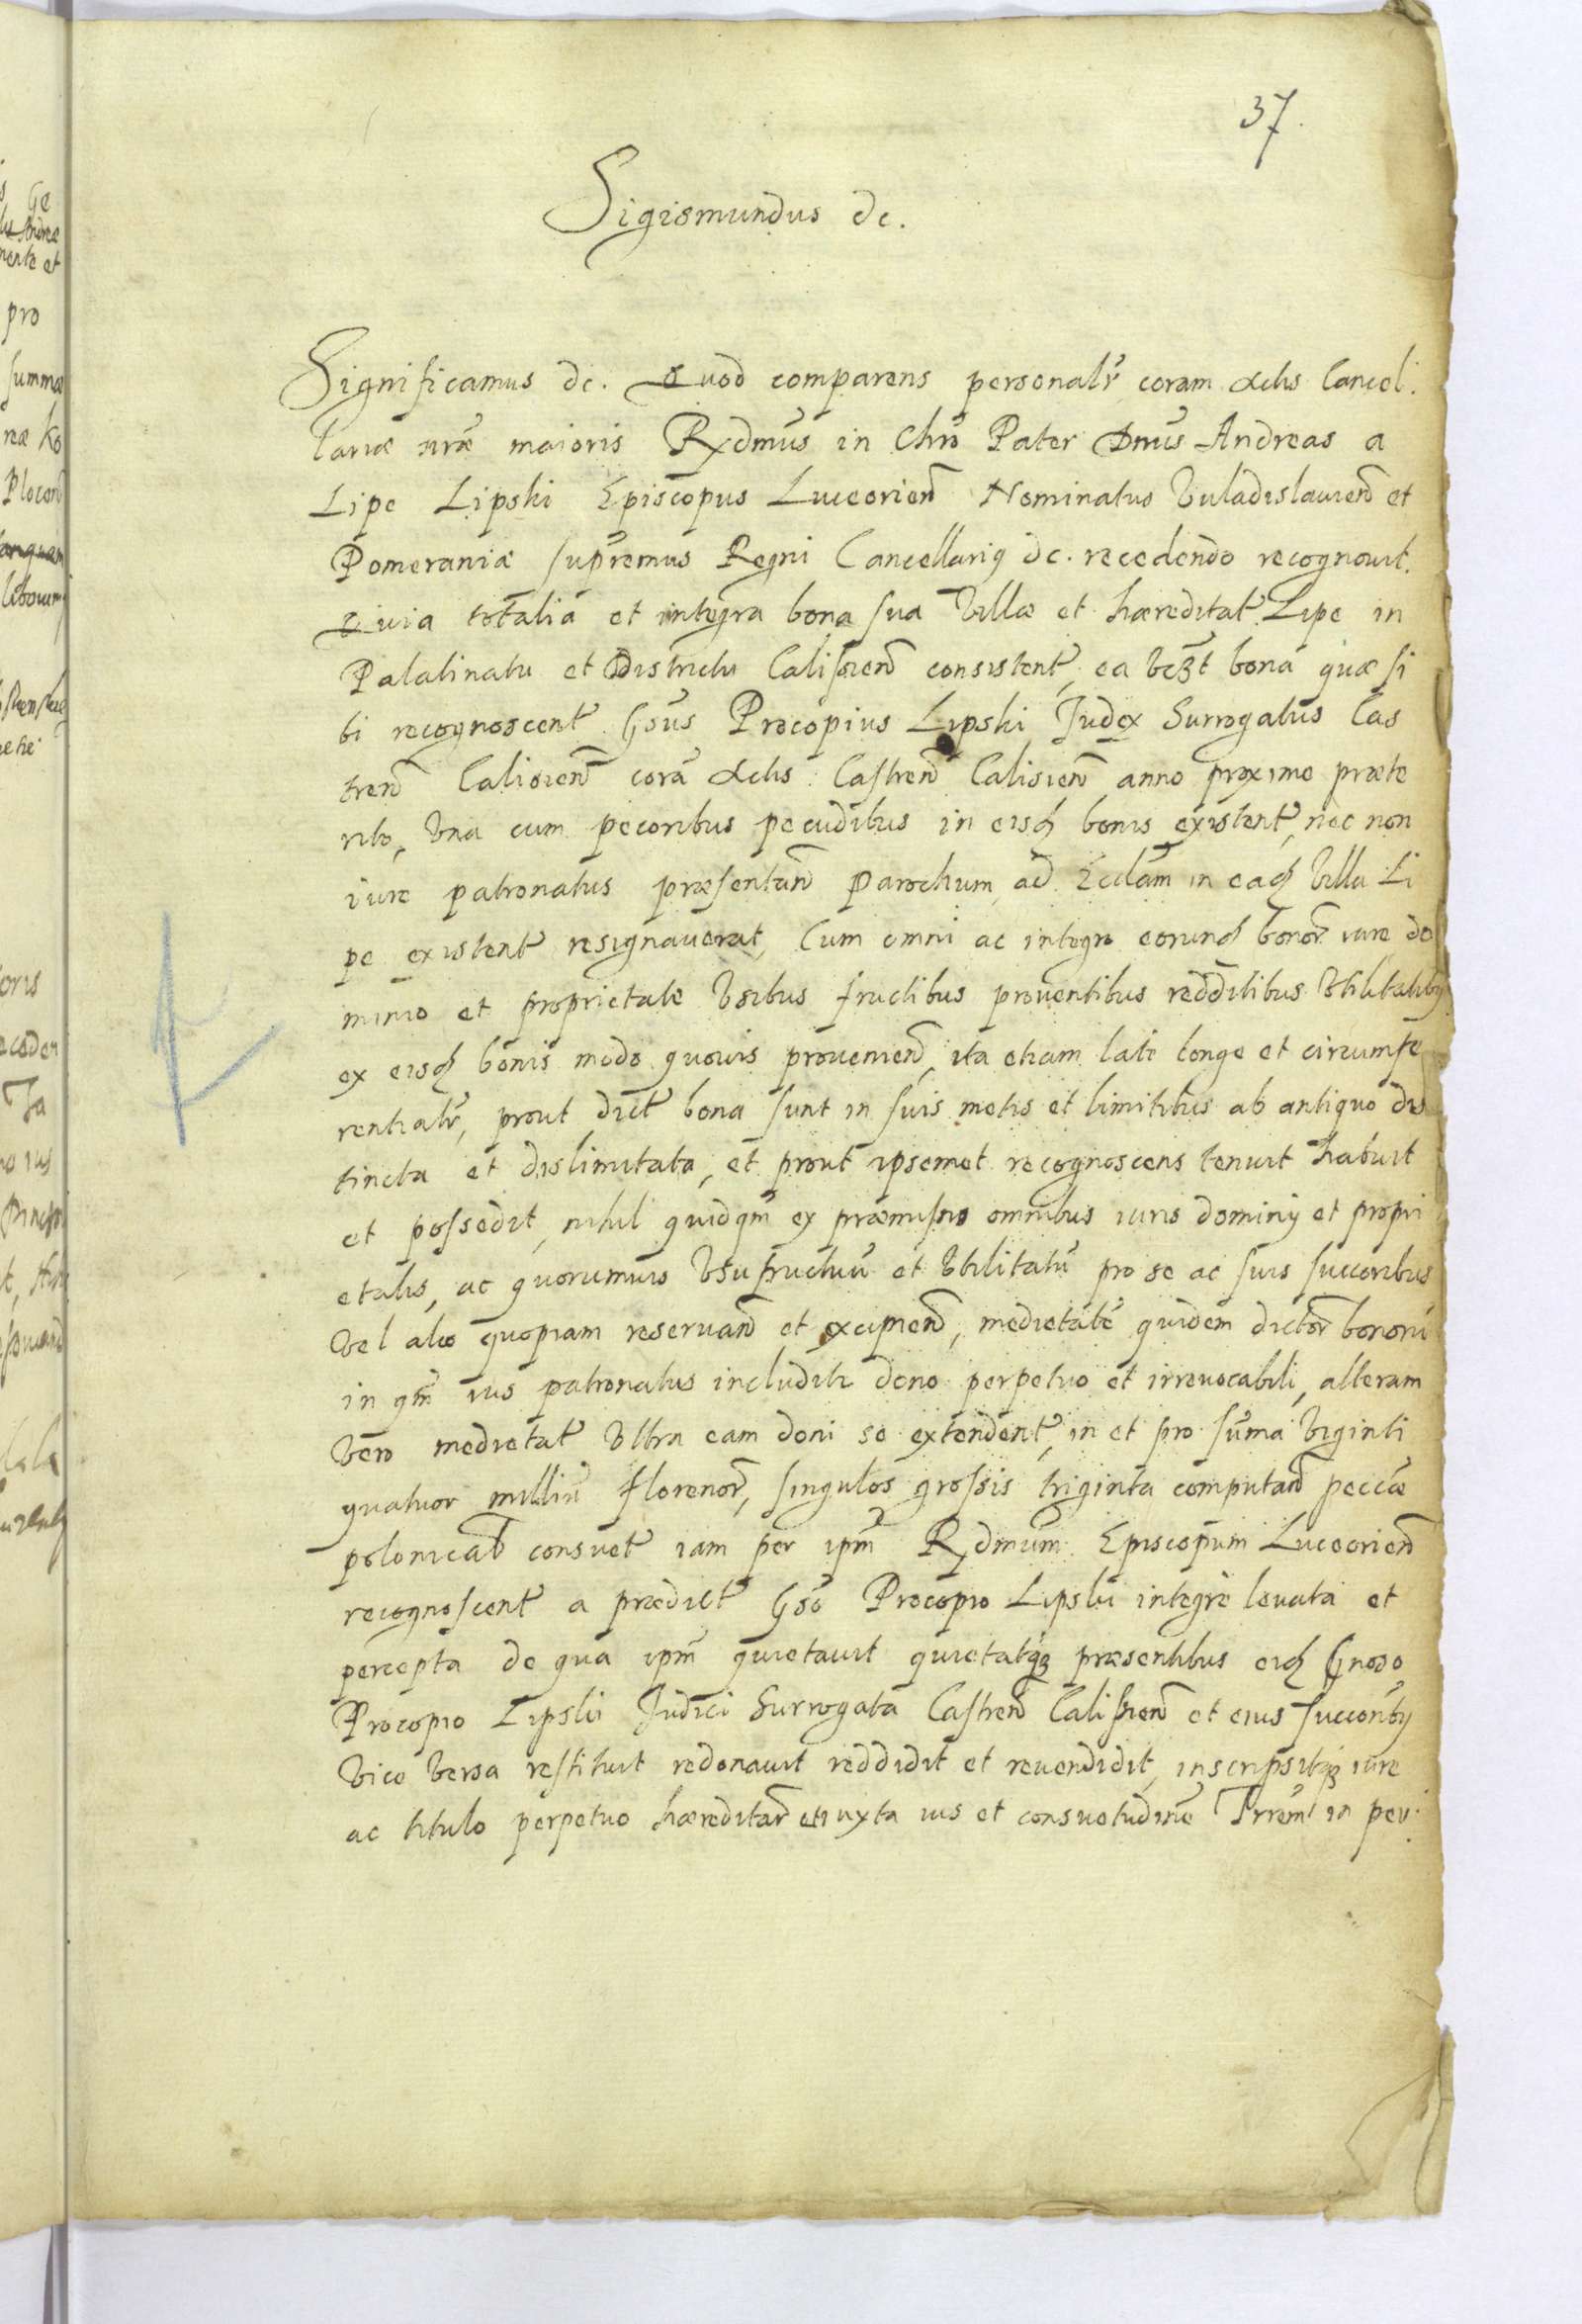 37.
Sigismundus &c.
Significamus &c. Quod comparens personalr̃ coram Actis Cancel
lariæ nr̃æ maioris Rx̃dmus in Chrõ Pater Dnũs Andreas a
Lipe Lipski Episcopus Luceorien̄ Nominatus Vuladislauien̄ et
Pomeraniæ supremus Regni Cancellariꝰ &c. recedendo recognouit.
Quia totalia et integra bona sua Villæ et hæreditat̃ Lipe in
Palatinatu et Districtu Calissien̄ consistent̃, ea vcꝫt bona quæ si
bi recognoscent̃ Gsũs Procopius Lipski Judex Surrogatus Cas
tren̄ Calisien̄ corã Actis Castren̄ Calisien̄ anno proxime præte
rito, Vna cum pecoribus pecudibus in eisđ bonis existent̃, nec non
iure patronatus præsentan̄ Parochum ad Ecclam̃ in eađ Villa Li
pe existent̃ resignauerat, Cum omni ac integro eorunđ bonor̃ iure do
minio et proprietate Vsibus fructibus prouentibus redditibus Vtilitatibꝰ
ex eisđ bonis modo quouis prouenien̄, ita etiam late longe et circumfe
rentialr̃, prout dict̃ bona sunt in suis metis et limitibus ab antiquo dis
tincta et dislimitata, et prout ipsemet recognoscens tenuit habuit
et possedit, nihil quidqm̃ ex præmissis omnibus iuris dominij et propri
etatis, ac quorumuis Vsufructuũ et Vtilitatũ pro se ac suis succoribus
Vel alio quopiam reseruan̄ et excipien̄, medietatẽ quidem dictor̃ bonorũ
in qm̃ ius patronatus includitr dono perpetuo et irreuocabili, alteram
Vero medietat̃ Vltra eam doni se extendent̃, in et pro sum̃a Viginti
quatuor milliũ florenor̃, singulos grossis triginta computan̄ pecc̃æ
polonical̃ consuet̃ iam per ipm̃ Rx̃dmum Episcopum Luceorien̄
recognoscent̃ a prædict̃ Gsõ Procopio Lipski integre leuata et
percepta de qua ipm̃ quietauit quietatqꝫ præsentibus eiđ Gnoso
Procopio Lipski Judici Surrogato Castren̄ Calissien̄ et eius succoribꝰ
Vice Versa restituit redonauit reddidit et reuendidit, inscripsitqꝫ iure
ac titulo perpetuo hæreditar̃ et iuxta ius et consuetudinẽ Trrẽm in per